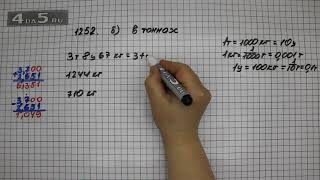 4DA5.RU
1252. б) в тоннах
3т 8ц 67 кг = 3т+
1244 кг
710 кг
3,700
+ 2,651
6,351
- 3,700
2,651
1,049
1т = 1000кг = 10ц
1кг = 1/1000 т = 0,001т
1ц = 100кг = 1/10 т = 0,1т